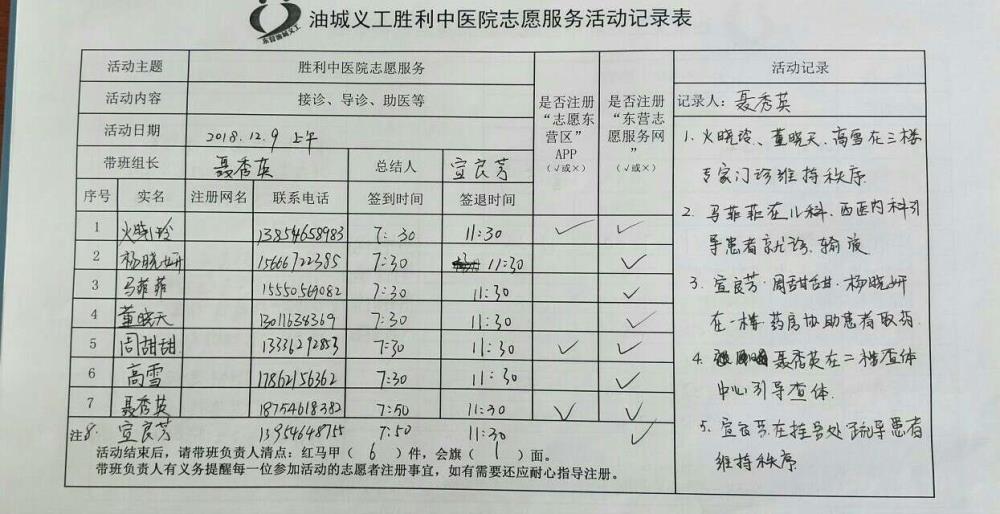 油城义工胜利中医院志愿服务活动记录表
东营油城义工
活动主题 胜利中医院志愿服务
活动内容 接诊、导诊、助医等
活动日期 2018.12.9 上午
带班组长 聂秀英 总结人 宣良芳
是否注册“志愿东营区”APP（√或×）
是否注册“东营志愿服务网”（√或×）
序号 实名 注册网名 联系电话 签到时间 签退时间
1 火晓玲 13854658983 7:30 11:30 √ √
2 杨晓妍 15666722385 7:30 11:30 √
3 马菲菲 15550569082 7:30 11:30 √
4 董晓天 13011638369 7:30 11:30 √
5 周甜甜 13336292853 7:30 11:30 √ √
6 高雪 17862156362 7:30 11:30 √
7 聂秀英 18754618382 7:50 11:30 √ √
注8. 宣良芳 13954648755 7:50 11:30 √
活动结束后，请带班负责人清点：红马甲（6）件，会旗（1）面。
带班负责人有义务提醒每一位参加活动的志愿者注册事宜，如有需要还应耐心指导注册。
活动记录
记录人：聂秀英
1. 火晓玲、董晓天、高雪在三楼
专家门诊维持秩序
2. 马菲菲在儿科、西医内科引
导患者就诊、输液
3. 宣良芳·周甜甜·杨晓妍
在一楼药房协助患者取药
4. 聂秀英在二楼查体
中心引导查体.
5. 宣良芳在挂号处疏导患者
维持秩序